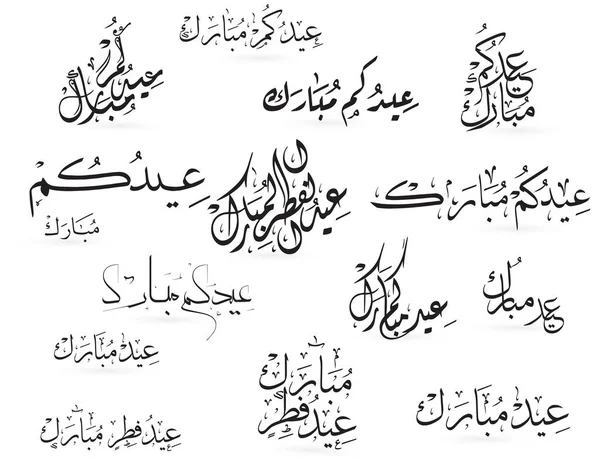 عيدكم مبارك
عيدكم مبارك
عيدكم مُبَارَك
عيدكم مبارك
عِيدُكُم
مُبَارَك
عيد الفطر المبارك
عِيدُكُم مُبَارَك
عيدكم مبارك
عيد مبارك
عيد مُبارك
عِيد مُبَارَك
مُبَارَك
عِيدُ فِطرٍ
عِيدُ فِطرٍ مُبَارَك
عِيد مُبَارَك